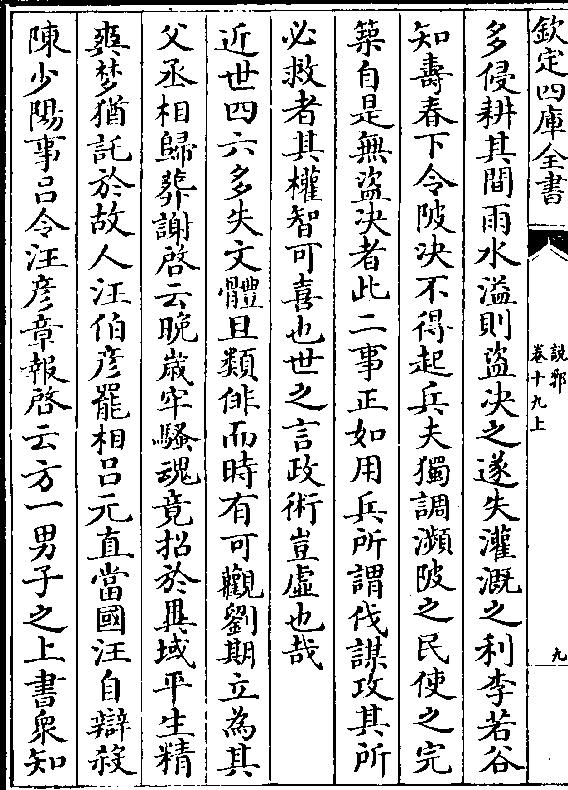 欽定四庫全書
說郛
卷十九上
九
多侵耕其間雨水溢則盜决之遂失灌溉之利李若谷
知壽春下令陂决不得起兵夫獨調瀕陂之民使之完
築自是無盜决者此二事正如用兵所謂伐謀攻其所
必救者其權智可喜也世之言政術豈虛也哉
近世四六多失文體且類俳而時有可觀劉期立為其
父丞相歸葬謝啓云晩歲牢騷魂竟招於異域平生精
爽夢猶託於故人汪伯彦罷相吕元直當國汪自辯殺
陳少陽事吕令汪彦章報啓云方一男子之上書衆知